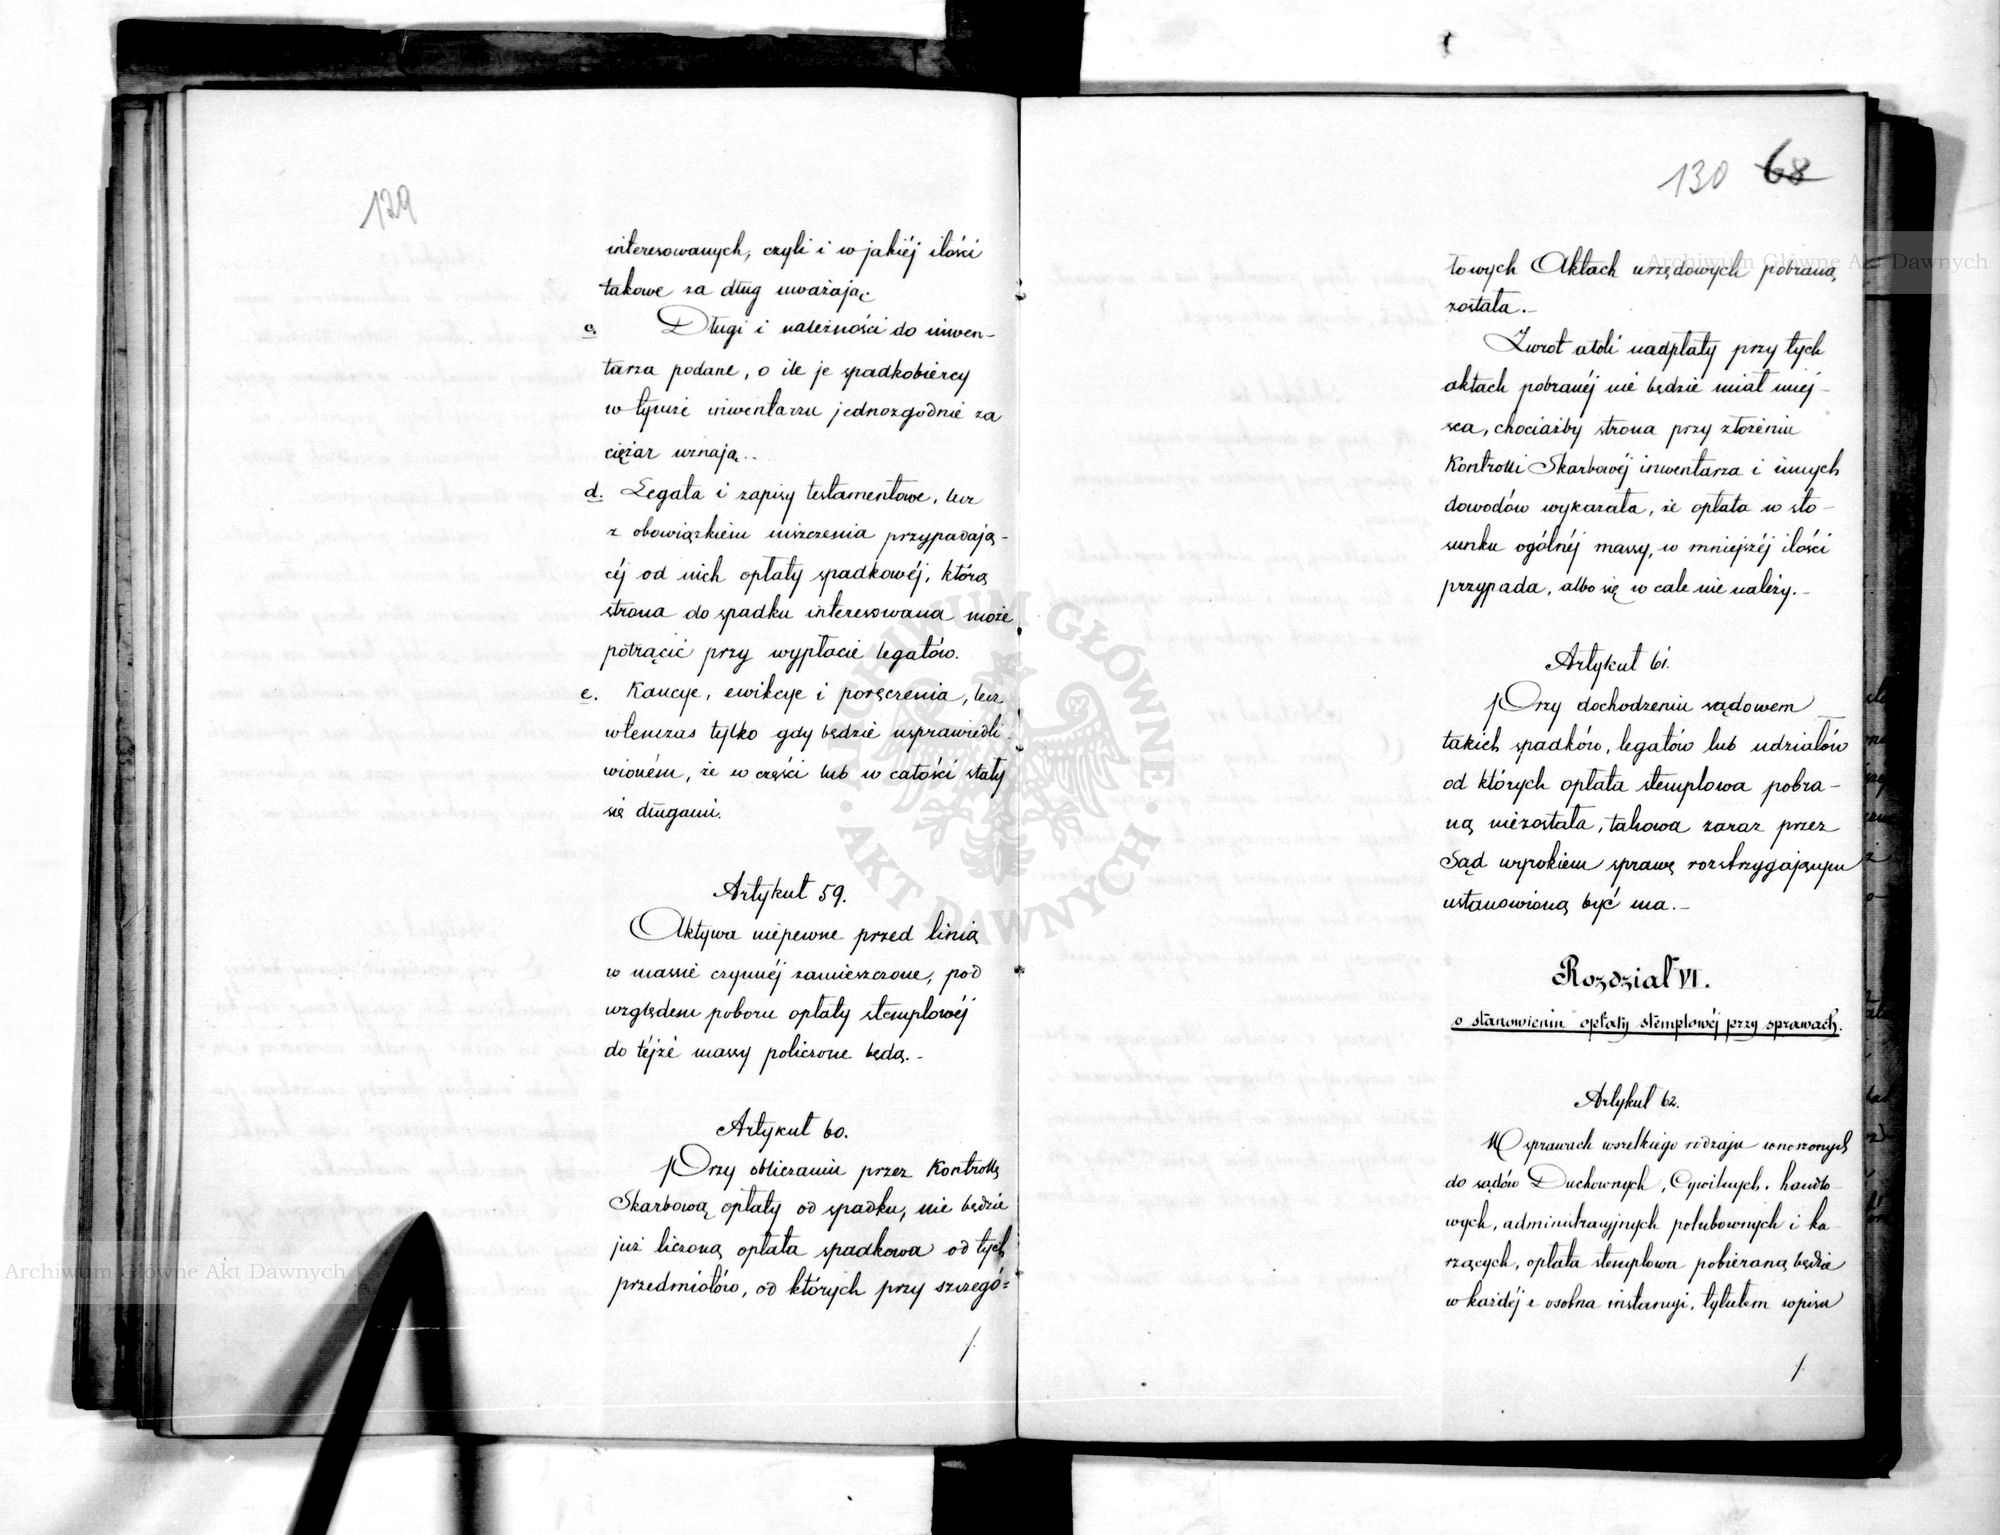 129
interesowanych, czyli i w jakiéj ilości
takowe za dług uważają.
c. Długi i należności do inwen-
tarza podane, o ile je spadkobiercy
w tymże inwentarzu jednozgodnie za
ciężar uznają..
d. Legata i zapisy testamentowe, lecz
z obowiązkiem uiszczenia przypadają-
céj od nich opłaty spadkowéj, którą
strona do spadku interesowana może
potrącić przy wypłacie legatów.
e. Kaucye, ewikcye i poręczenia, lecz
wtenczas tylko gdy będzie usprawiedli-
wioném, że w części lub w całości stały
się długami.
Artykuł 59.
Aktywa niepewne przed linią
w massie czynnéj zamieszczone, pod
względem poboru opłaty stemplowéj
do téjże massy policzone będą.-
Artykuł 60.
Przy obliczaniu przez Kontrollę
Skarbową opłaty od spadku, nie będzie
już liczoną opłata spadkowa od tych
przedmiotów, od których przy szczegó-
/.
130 68
łowych Aktach urzędowych pobraną
została.-
Zwrot atoli nadpłaty przy tych
aktach pobranéj nie będzie miał miéj-
sca, chociażby strona przy złożeniu
Kontrolli Skarbowéj inwentarza i innych
dowodów wykazała, że opłata w sto-
sunku ogólnéj massy, w mniejszéj ilości
przypada, albo się w cale nie należy.-
Artykuł 61.
Przy dochodzeniu sądowem
takich spadków, legatów lub udziałów
od których opłata stemplowa pobra-
ną niezostała, takowa zaraz przez
Sąd wyrokiem sprawę rozstrzygającym
ustanowioną być ma.-
Rozdział VI.
o stanowieniu opłaty stemplowéj przy sprawach.
Artykuł 62.
W sprawach wszelkiego rodzaju wnoszonych
do sądów Duchownych, Cywilnych, handlo-
wych, administracyjnych polubownych i ka-
rzących, opłata stemplowa pobieraną będzie
w każdéj z osobna instancyi, tytułem wpisu
/.
Archiwum Główne Akt Dawnych
Archiwum Główne Akt Dawnych
ARCHIWUM GŁÓWNE AKT DAWNYCH